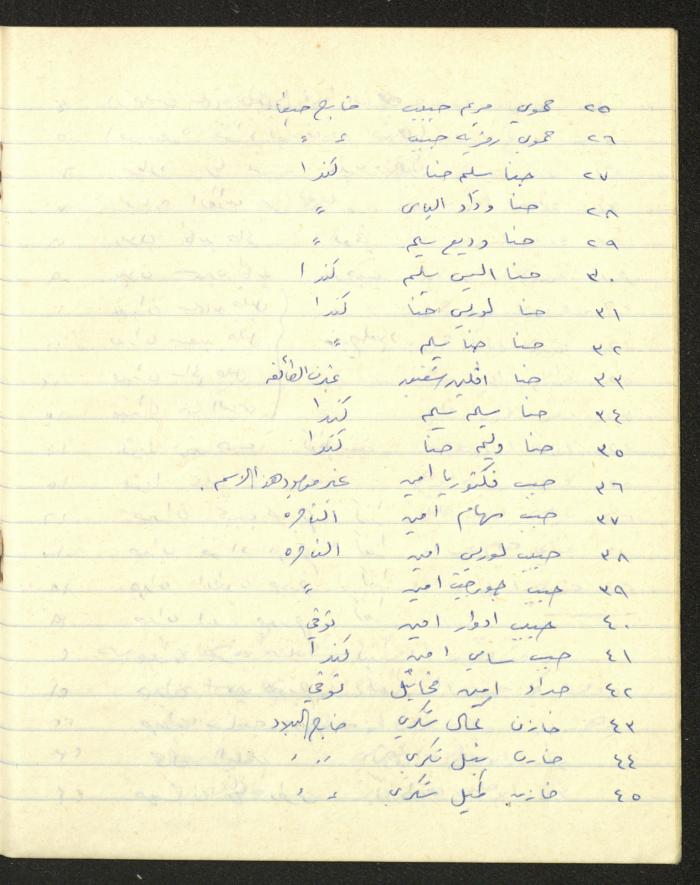 ٢٥ حموي مريم حبيب خارج حيفا
٢٦ حموي رمزيه حبيب 〃 〃
٢٧ حنا سليم حنا كندا
٢٨ حنا وداد الياس 〃
٢٩ حنا وديع سليم 〃
٣٠ حنا اليس سليم كندا
٣١ حنا لوريس حنا كندا
٣٢ حنا حنا سليم 〃
٣٣ حنا افلين غير الطائفه
٣٤ حنا سليم سليم كندا
٣٥ حنا وليم حنا كندا
٣٦ حبيب فكتوريا امين غير موجود هذا الاسم .
٣٧ حبيب سهام امين الناصره
٣٨ حبيب لوريس امين الناصره
٣٩ حبيب جورجيت امين 〃
٤٠ حبيب ادوار امين توفي
٤١ حبيب سامي امين كندا
٤٢ حداد امين مخائيل توفي
٤٣ خازن كمال شكري خارج البلاد
٤٤ خازن نبيل شكري 〃 〃
٤٥ خازن شكري 〃 〃